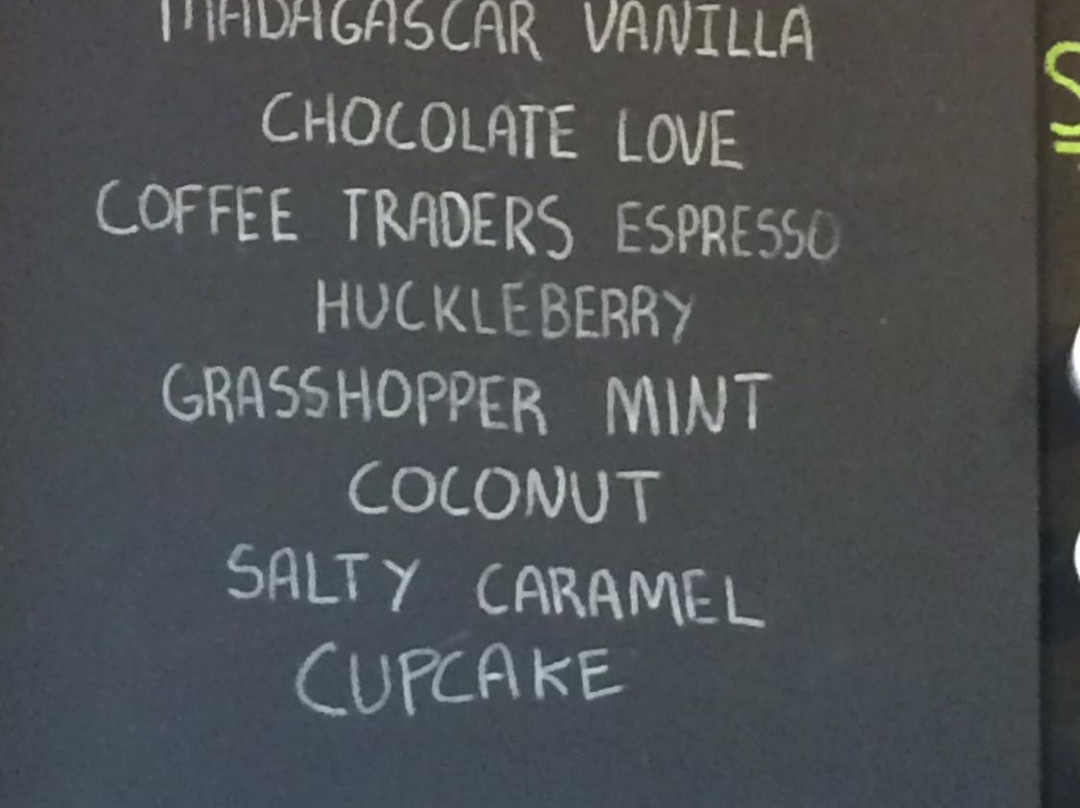 MADAGASCAR VANILLA
CHOCOLATE LOVE
COFFEE TRADERS ESPRESSO
HUCKLEBERRY
GRASSHOPPER MINT
COCONUT
SALTY CARAMEL
CUPCAKE
S